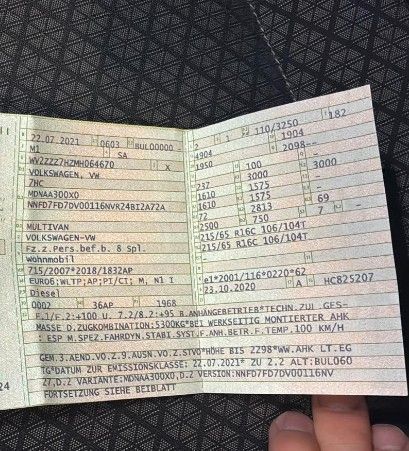 22.07.2021 0603 BUL00000 -
M1 SA
WV2ZZZ7HZMH064670 X
VOLKSWAGEN, VW
7HC
MDNAA300X0
NNFD7FD7DV00116NVR24BI2A72A
MULTIVAN
VOLKSWAGEN-VW
Fz.z.Pers.bef.b. 8 Spl.
Wohnmobil
715/2007*2018/1832AP
EURO6;WLTP;AP;PI/CI; M, N1 I
Diesel
0002 36AP 1968
2 1 110/3250 182
4904 1904
1950 2098--
100
237 3000 3000
1610 1575 -
1610 1575 -
72 2813 69
2500 750 7 -
215/65 R16C 106/104T
215/65 R16C 106/104T
-
e1*2001/116*0220*62
23.10.2020 A HC825207
F.1/F.2:+100 U. 7.2/8.2:+95 B.ANHÄNGEBETRIEB*TECHN.ZUL .GES-
MASSE D.ZUGKOMBINATION:5300KG*BEI WERKSEITIG MONTIERTER AHK
: ESP M.SPEZ.FAHRDYN.STABI.SYST.F.ANH.BETR.F.TEMP.100 KM/H
GEM.3.AEND.VO.Z.9.AUSN.VO.Z.STVO*HÖHE BIS 2298*WW.AHK LT.EG
TG*DATUM ZUR EMISSIONSKLASSE: 22.07.2021* ZU 2.2 ALT:BUL060
27,D.2 VARIANTE:MDNAA300X0,D.2 VERSION:NNFD7FD7DV00116NV
FORTSETZUNG SIEHE BEIBLATT
24